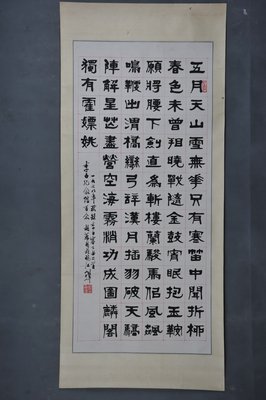 五月天山雪無華只有寒笛中聞折柳
春色未曾看曉戰隨金鼓宵眠抱玉鞍
願將腰下劍直為斬樓蘭駿馬佀風飆
鳴鞭出渭橋彎弓辭漢月插羽破天驕
陣解星芒盡營空海霧消功成圖麟閣
獨有霍嫖姚